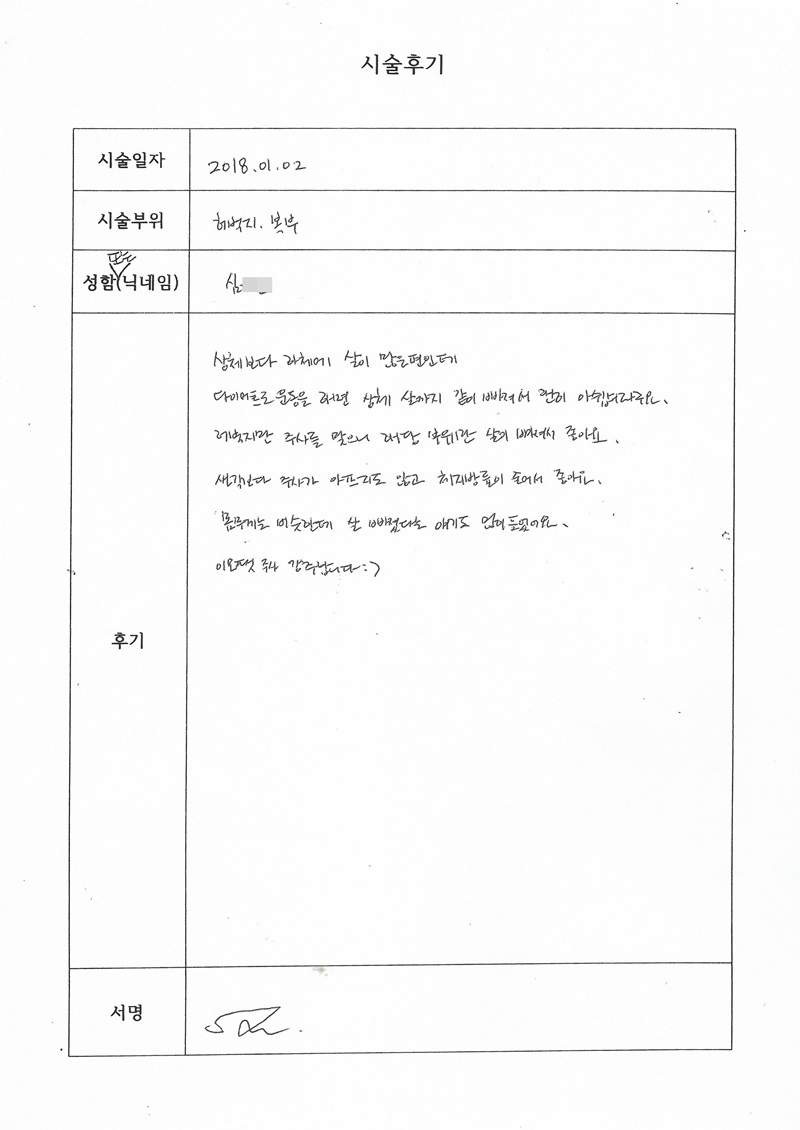 시술후기
시술일자 2018.01.02
시술부위 허벅지. 복부
또는
성함(닉네임) 심
상체보다 하체에 살이 많은편인데
다이어트로 운동을 하면 상체 살까지 같이 빠져서 아쉽더라구요.
허벅지만 주사를 맞으니 해당 부위만 살이 빠져서 좋아요.
생각보다 주사가 아프지도 않고 허벅지 좋아요.
몸무게는 비슷한데 살 빠졌다는 얘기도 많이 들었어요.
주사 감사합니다 :)
후기
서명